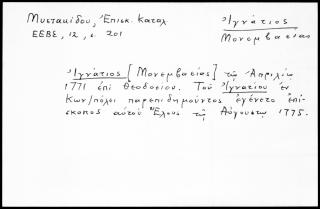 Μυστακίδου, Ἐπισκ. Καταλ
ΕΕΒΣ, 12, σ. 201
Ἰγνάτιος
Μονεμβασίας
Ἰγνάτιος [Μονεμβασίας] τῷ Ἀπριλίῳ
1771 ἐπὶ Θεοδοσίου. Τοῦ Ἰγνατίου ἐν
Κων/πόλει παρεπιδημοῦντος ἐγένετο ἐπί-
σκοπος αὐτοῦ Ἕλους τῷ Αὐγούστῳ 1775.